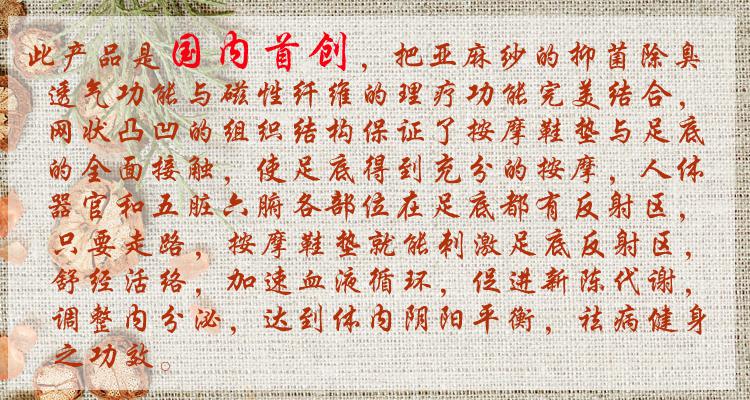 此产品是国内首创，把亚麻纱的抑菌除臭
透气功能与磁性纤维的理疗功能完美结合，
网状凸凹的组织结构保证了按摩鞋垫与足底
的全面接触，使足底得到充分的按摩，人体
器官和五脏六腑各部位在足底都有反射区，
只要走路，按摩鞋垫就能刺激足底反射区，
舒经活络，加速血液循环，促进新陈代谢，
调整内分泌，达到体内阴阳平衡，祛病健身
之功效。